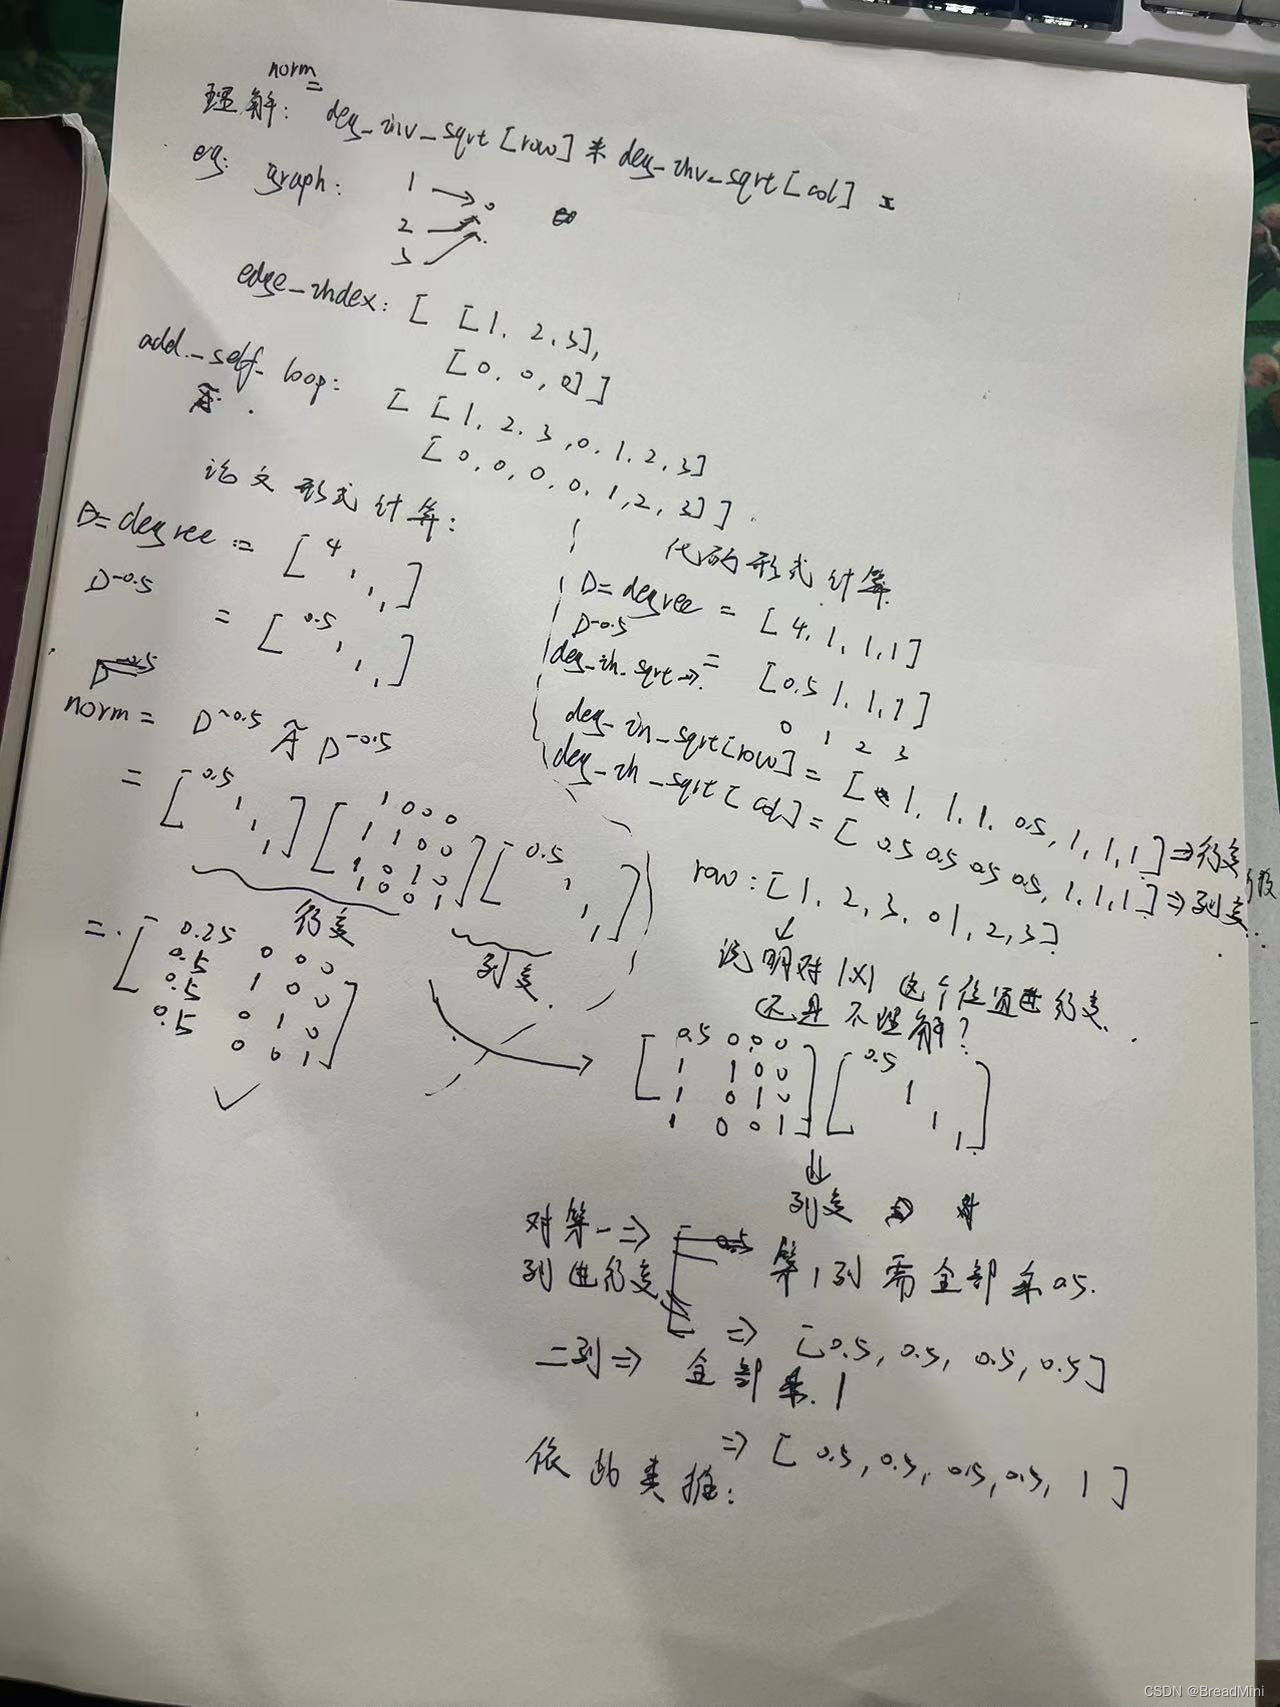 norm =
理解: deg_inv_sqrt [row] * deg_inv_sqrt [col]
eg: graph: 1 → 0
2
3
edge_index: [ [1, 2, 3],
[0, 0, 0] ]
add_self_loop: [ [1, 2, 3, 0, 1, 2, 3]
Ã. [0, 0, 0, 0, 1, 2, 3] ]
论文形式计算:
D = degree = [ 4
1
1
1 ]
D^-0.5
= [ 0.5
1
1
1 ]
norm = D^-0.5 Ã D^-0.5
= [ 0.5
1
1
1 ] [ 1 0 0 0
1 1 0 0
1 0 1 0
1 0 0 1 ] [ 0.5
1
1
1 ]
行变
列变
= [ 0.25 0 0 0
0.5 1 0 0
0.5 0 1 0
0.5 0 0 1 ]
✓
代码形式计算
D = degree = [4, 1, 1, 1]
D^-0.5
deg_in_sqrt → = [0.5 1, 1, 1]
0 1 2 3
deg_in_sqrt[row] = [ 1, 1, 1, 0.5, 1, 1, 1 ] ⇒ 行变
deg_in_sqrt [col] = [ 0.5 0.5 0.5 0.5, 1, 1, 1 ] ⇒ 列变
row: [1, 2, 3, 0 1, 2, 3]
↓
说明对 这个位置进行变.
还是不理解?
[ 0.5 0 0 0
1 1 0 0
1 0 1 0
1 0 0 1 ] [ 0.5
1
1
1 ]
⇓
列变
对第一 ⇒
列进行变
第1列需全部乘0.5.
⇒ [0.5, 0.5, 0.5, 0.5]
二列 ⇒ 全部乘1
⇒ [ 0.5, 0.5, 0.5, 0.5, 1 ]
依此类推:
CSDN @BreadMini